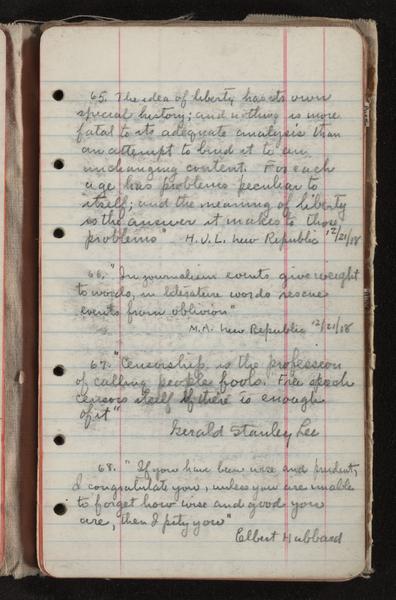 65. The idea of liberty has its own
special history; and nothing is more
fatal to its adequate analysis than
an attempt to bind it to an
unchanging content. For each
age has problems peculiar to
itself; and the meaning of liberty
is the answer it makes to those
problems" H.J.L. New Republic 12/21/18
66. "In journalism events give weight
to words, in literature words rescue
events from oblivion"
M.A. New Republic 12/21/18
67. "Censorship is the profession
of calling peoples fools. "Free speech
censors itself if there is enough
of it"
Gerald Stanley Lee
68. "If you have been wise and prudent,
I congratulate you, unless you are unable
to forget how wise and good you
are, then I pity you"
Elbert Hubbard